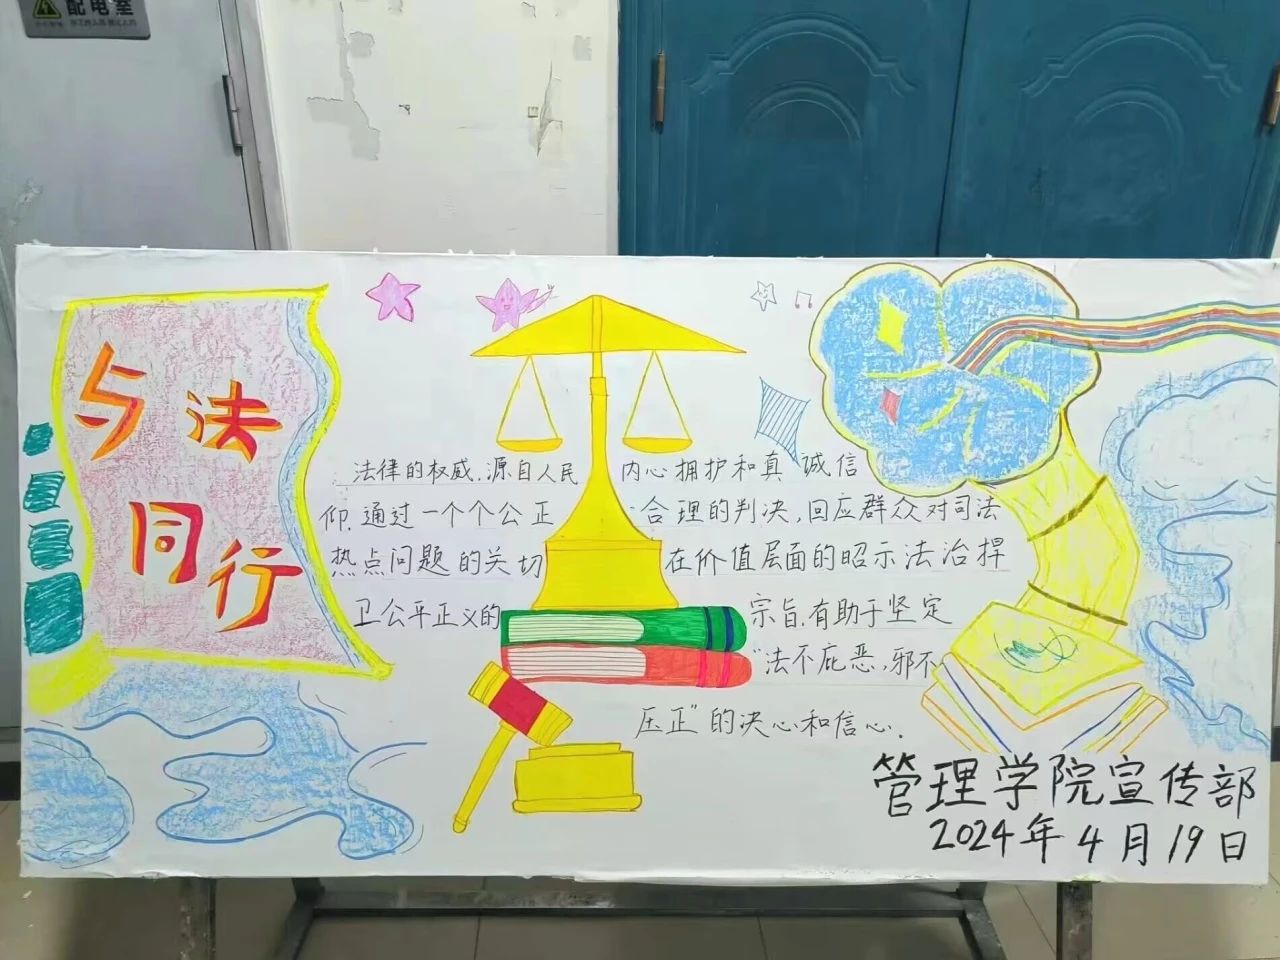 配电室
与法
同行
法律的权威,源自人民内心拥护和真诚信
仰,通过一个个公正合理的判决,回应群众对司法
热点问题的关切在价值层面的昭示法治捍
卫公平正义的宗旨,有助于坚定
"法不庇恶,邪不
压正"的决心和信心.
管理学院宣传部
2024年4月19日